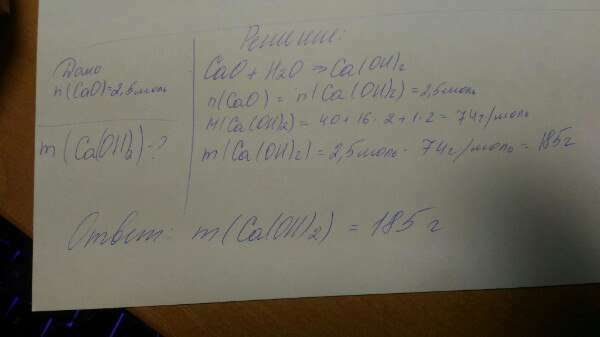 Дано
n(CaO)=2,5моль
m(Ca(OH)2)-?
Решение:
CaO + H2O => Ca(OH)2
n(CaO) = n(Ca(OH)2) = 2,5моль
M(Ca(OH)2) = 40+16·2+1·2 = 74г/моль
m(Ca(OH)2) = 2,5моль · 74г/моль = 185г
Ответ: m(Ca(OH)2) = 185 г